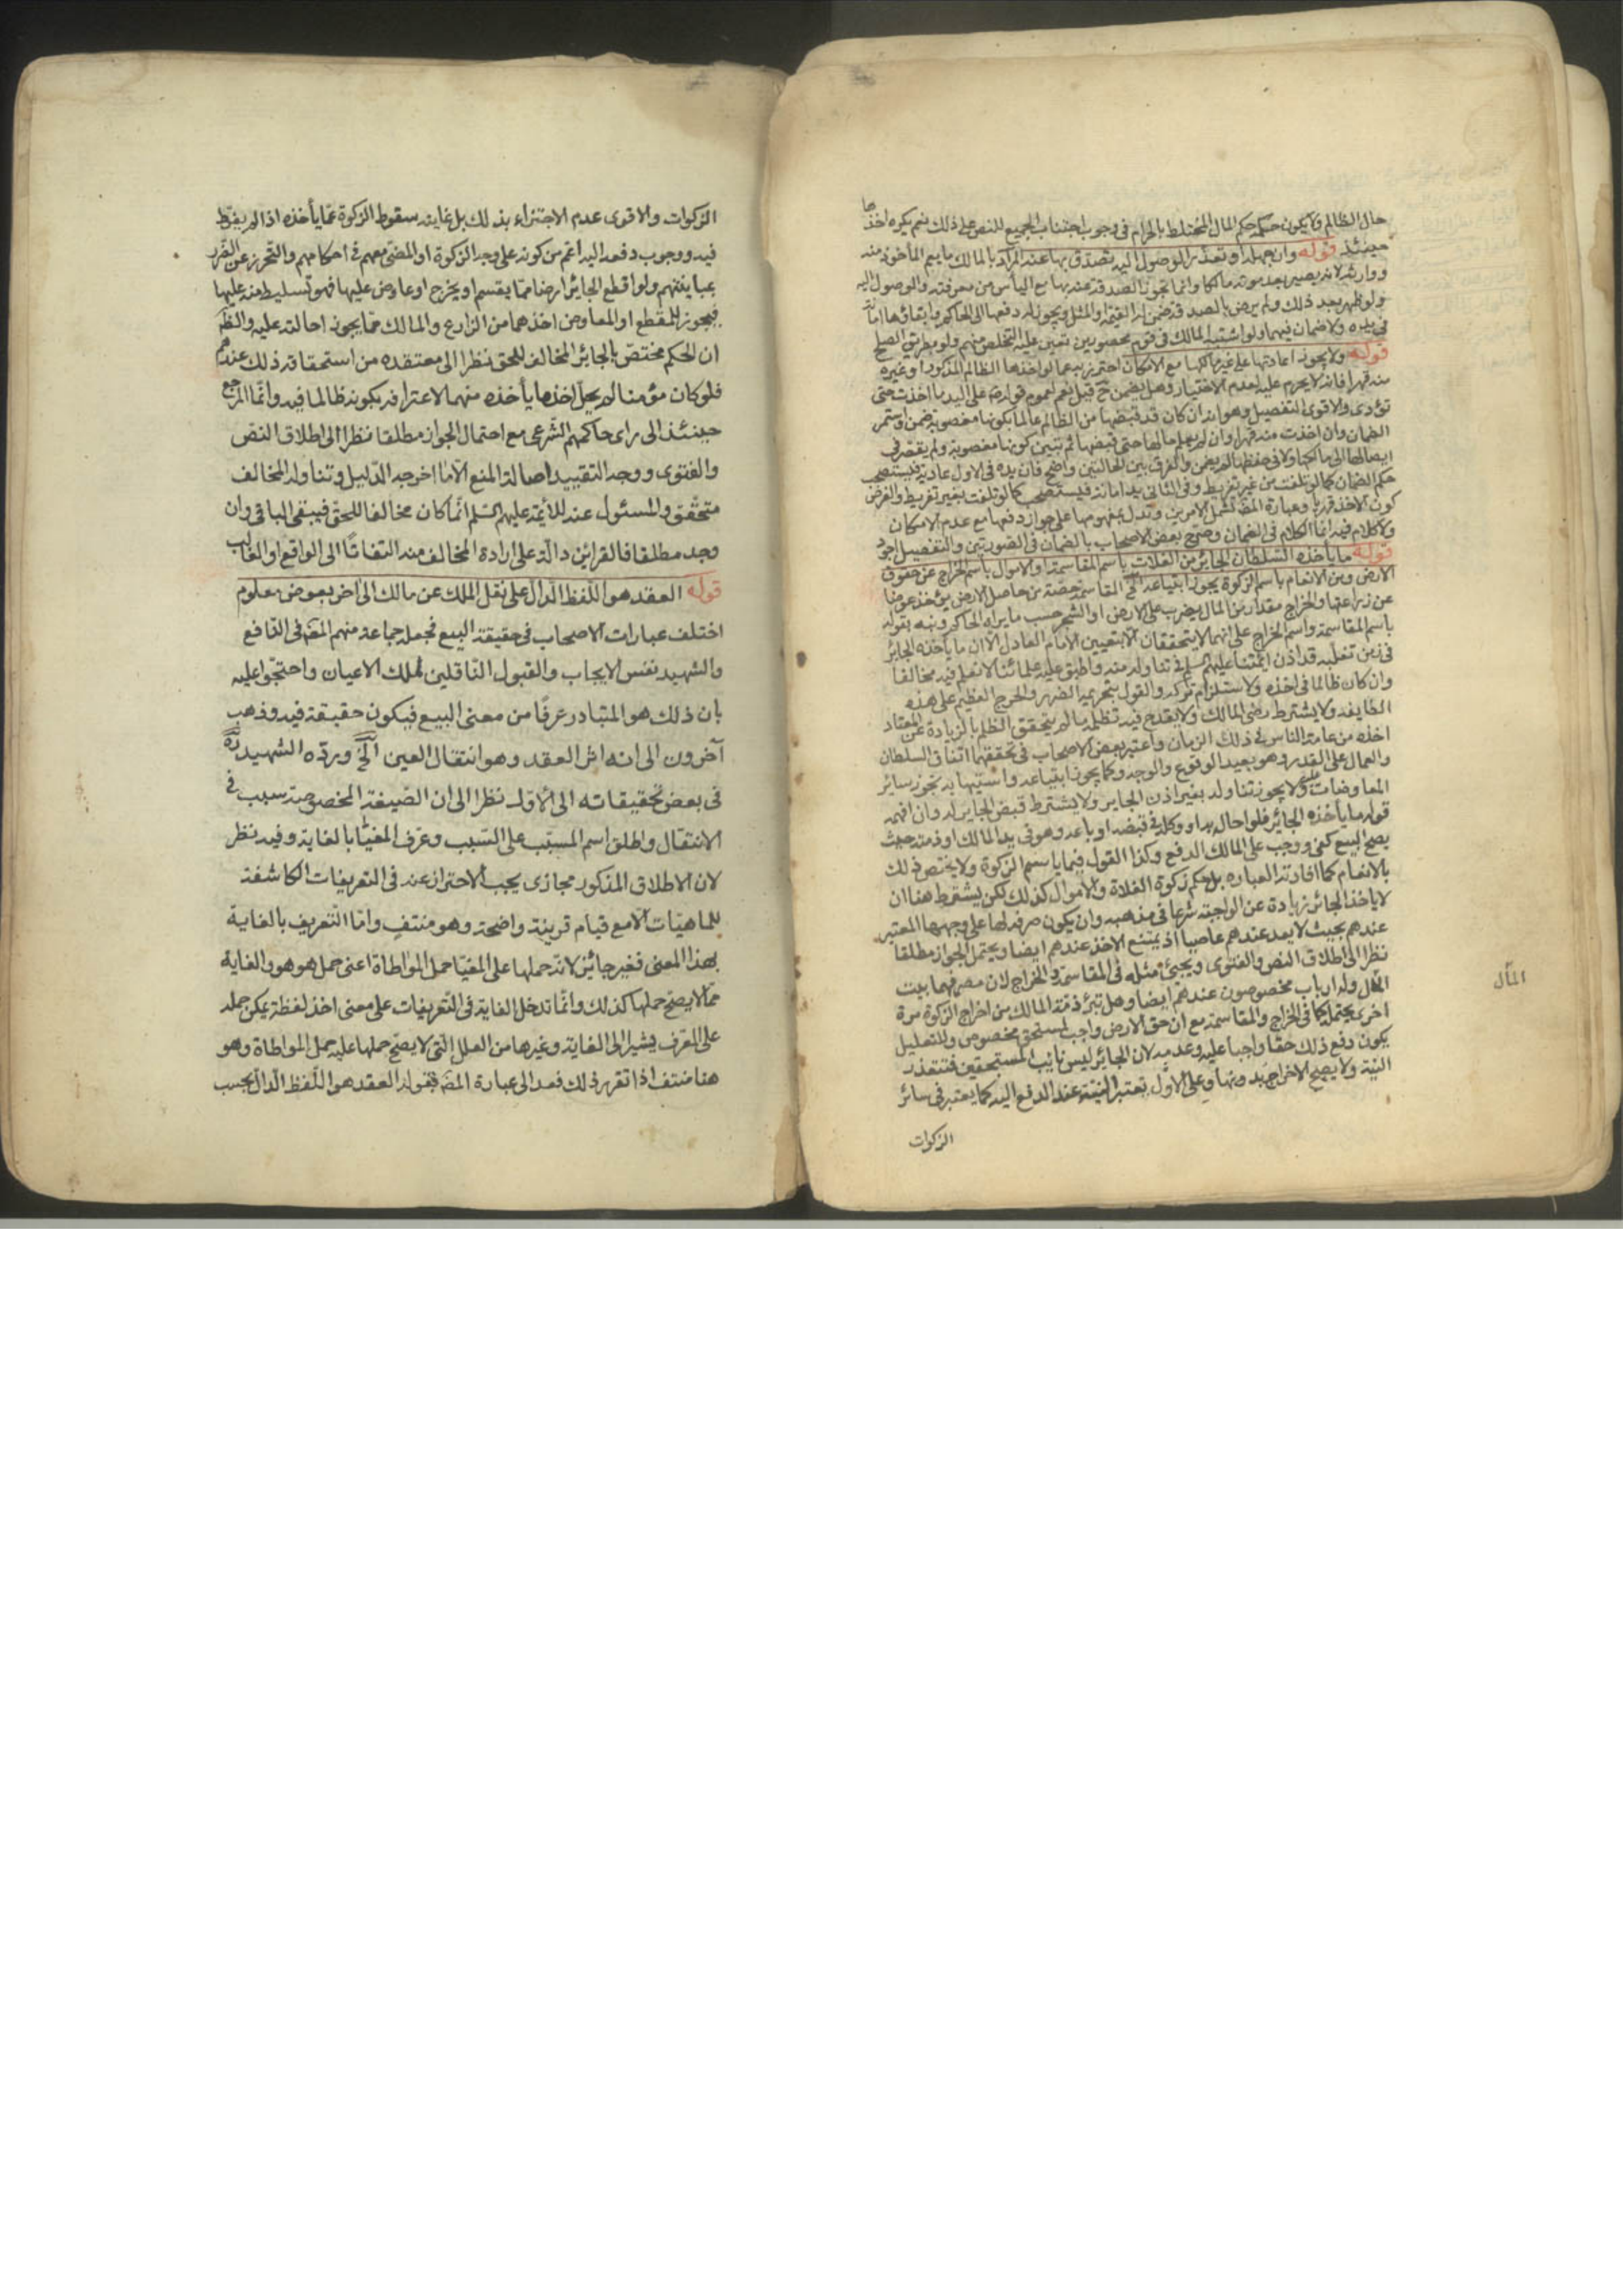 حال الظالم ولا يكون حكمه حكم المال المختلط بالحرام فى وجوب اجتناب الجميع للنص على ذلك نعم يكره اخذها
حينئذ قوله وان جهله او تعذر الوصول اليه تصدق بها عنه المراد بالمالك ما يعم المأخوذ منه
ووارثه لانه يصير بعد موته مالكا وانما تجوز الصدقة عنه بها مع اليأس من معرفته والوصول اليه
ولو ظهر بعد ذلك ولم يرض بالصدقة ضمن له القيمة او المثل ويجوز له دفعها الى الحاكم وابقاؤها امانة
فى يده ولا ضمان فيهما ولو اشتبه المالك فى قوم محصورين تعين عليه التخلص منهم ولو بطريق الصلح
قوله ولا يجوز اعادتها على غير مالكها مع الامكان احترز به عما لو اخذها الظالم المذكور او غيره
منه قهرا فانه لا يحرم عليه لعدم الاختيار وهل يضمن ح قيل نعم لعموم قوله ص على اليد ما اخذت حتى
تؤدى والاقوى التفصيل وهو انه ان كان قد قبضها من الظالم عالما بكونها مغصوبة ضمن واستمر
الضمان وان اخذت منه قهرا وان لم يعلم حالها حتى قبضها ثم تبين كونها مغصوبة ولم يقصر فى
ايصالها الى مالكها ولا فى حفظها لم يضمن والفرق بين الحالتين واضح فان يده فى الاول عادية فيستصحب
حكم الضمان كما لو تلفت من غير تفريط وفى الثانى يد امانة فيستصحب كما لو تلفت بغير تفريط والفرض
كون الاخذ قهريا وعبارة المص تشمل الامرين وتدل بمفهومها على جواز دفعها مع عدم الامكان
ولا كلام فيه انما الكلام فى الضمان وصرح بعض الاصحاب بالضمان فى الصورتين والتفصيل اجود
قوله ما يأخذه السلطان الجائر من الغلات باسم المقاسمة او الاموال باسم الخراج عن حقوق
الارض ومن الانعام باسم الزكوة يجوز ابتياعه الخ المقاسمة حصة من حاصل الارض يؤخذ عوضا
عن زراعتها والخراج مقدار من المال يضرب على الارض او الشجر حسب ما يراه الحاكم ونبه بقوله
باسم المقاسمة واسم الخراج على انهما لا يتحققان الا بتعيين الامام العادل الا ان ما يأخذه الجائر
فى زمن تغلبه قد اذن ائمتنا عليهم السلم فى تناوله منه واطبق عليه علمائنا لا نعلم فيه مخالفا
وان كان ظالما فى اخذه ولاستلزام تركه والقول بتحريمه الضرر والحرج العظيم على هذه
الطايفة ولا يشترط رضى المالك ولا يقدح فيه تظلمه ما لم يتحقق الظلم بالزيادة عن المعتاد
اخذه من عامة الناس فى ذلك الزمان واعتبر بعض الاصحاب فى تحققهما اتفاق السلطان
والعمال على القدر وهو بعيد الوقوع والوجه وكما يجوز ابتياعه واستيهابه يجوز سائر
المعاوضات عليه ولا يجوز تناوله بغير اذن الجاير ولا يشترط قبض الجاير له وان افهمه
قوله ما يأخذه الجائر فلو احال به او وكله فى قبضه او باعه وهو فى يد المالك او ذمته حيث
يصح البيع كفى ووجب على المالك الدفع وكذا القول فيما ياسم الزكوة ولا يختص ذلك
بالانعام كما افادته العباره بل حكم زكوة الغلاة والاموال كذلك لكن يشترط هنا ان
لا ياخذ الجائر زيادة عن الواجبة شرعا فى مذهبه وان يكون صرفه لها على وجهها المعتبر
عندهم بحيث لا يعد عندهم عاصيا اذ يمتنع الاخذ عندهم ايضا ويحتمل الجواز مطلقا
نظرا الى اطلاق النص والفتوى ويجئ مثله فى المقاسمة والخراج لان مصرفهما بيت
المال وله ارباب مخصوصون عندهم ايضا وهل تبرئ ذمة المالك من اخراج الزكوة مرة
اخرى يحتمله كما فى الخراج والمقاسمة مع ان حق الارض واجب لمستحق مخصوص وللتعليل
يكون دفع ذلك حقا واجبا عليه وعدمه لان الجائر ليس نايب المستحقين فتتعذر
النية ولا يصح الاخراج بدونها وعلى الاول تعتبر النية عند الدفع اليه كما يعتبر فى سائر
الزكوات
المال
الزكوات والاقوى عدم الاجتزاء بذلك بل غايته سقوط الزكوة عما يأخذه اذا لم يفرط
فيه ووجوب دفعه اليه اعم من كونه على وجه الزكوة او المضى معهم فى احكامهم والتحرز عن الضرر
بمباينتهم ولو اقطع الجائر ارضا مما يقسم او يخرج او عاوض عليها فهو تسليط منه عليها
فيجوز للمقطع او المعاوض اخذهما من الزارع والمالك مما يجوز احالته عليه والظ
ان الحكم مختص بالجائر المخالف للحق نظرا الى معتقده من استحقاقه ذلك عندهم
فلو كان مؤمنا لم يحل اخذ ما يأخذه منهما لاعترافه بكونه ظالما فيه وانما المرجع
حينئذ الى راى حاكمهم الشرعى مع احتمال الجواز مطلقا نظرا الى اطلاق النص
والفتوى ووجه التقييد اصالة المنع الا ما اخرجه الدليل وتناوله المخالف
متحقق والمسئول عنه للائمة عليهم السلم انما كان مخالفا للحق فيبقى الباقى وان
وجد مطلقا فالقرائن دالة على ارادة المخالف منه التفاتا الى الواقع او الغالب
قوله العقد هو اللفظ الدال على نقل الملك عن مالك الى اخر بعوض معلوم
اختلف عبارات الاصحاب فى حقيقة البيع فجعله جماعة منهم المص فى النافع
والشهيد نفس الايجاب والقبول الناقلين لملك الاعيان واحتجوا عليه
بان ذلك هو المتبادر عرفا من معنى البيع فيكون حقيقة فيه وذهب
آخرون الى انه اثر العقد وهو انتقال العين الخ ورده الشهيد ره
فى بعض تحقيقاته الى الاول نظرا الى ان الصيغة المخصوصة سبب فى
الانتقال واطلق اسم المسبب على السبب وعرف المغيا بالغاية وفيه نظر
لان الاطلاق المذكور مجازى يجب الاحتراز عنه فى التعريفات الكاشفة
للماهيات الا مع قيام قرينة واضحة وهو منتف واما التعريف بالغاية
بهذا المعنى فغير جائز لانه حملها على المغيا حمل المواطاة اعنى حمل هو هو والغاية
مما لا يصح حملها كذلك وانما تدخل الغاية فى التعريفات على معنى اخذ لفظة يمكن حمله
على المعرف يشير الى الغاية وغيرها من العلل التى لا يصح حملها عليه حمل المواطاة وهو
هنا منتف اذا تقرر ذلك فعد الى عبارة المص فقوله العقد هو اللفظ الدال بحسب